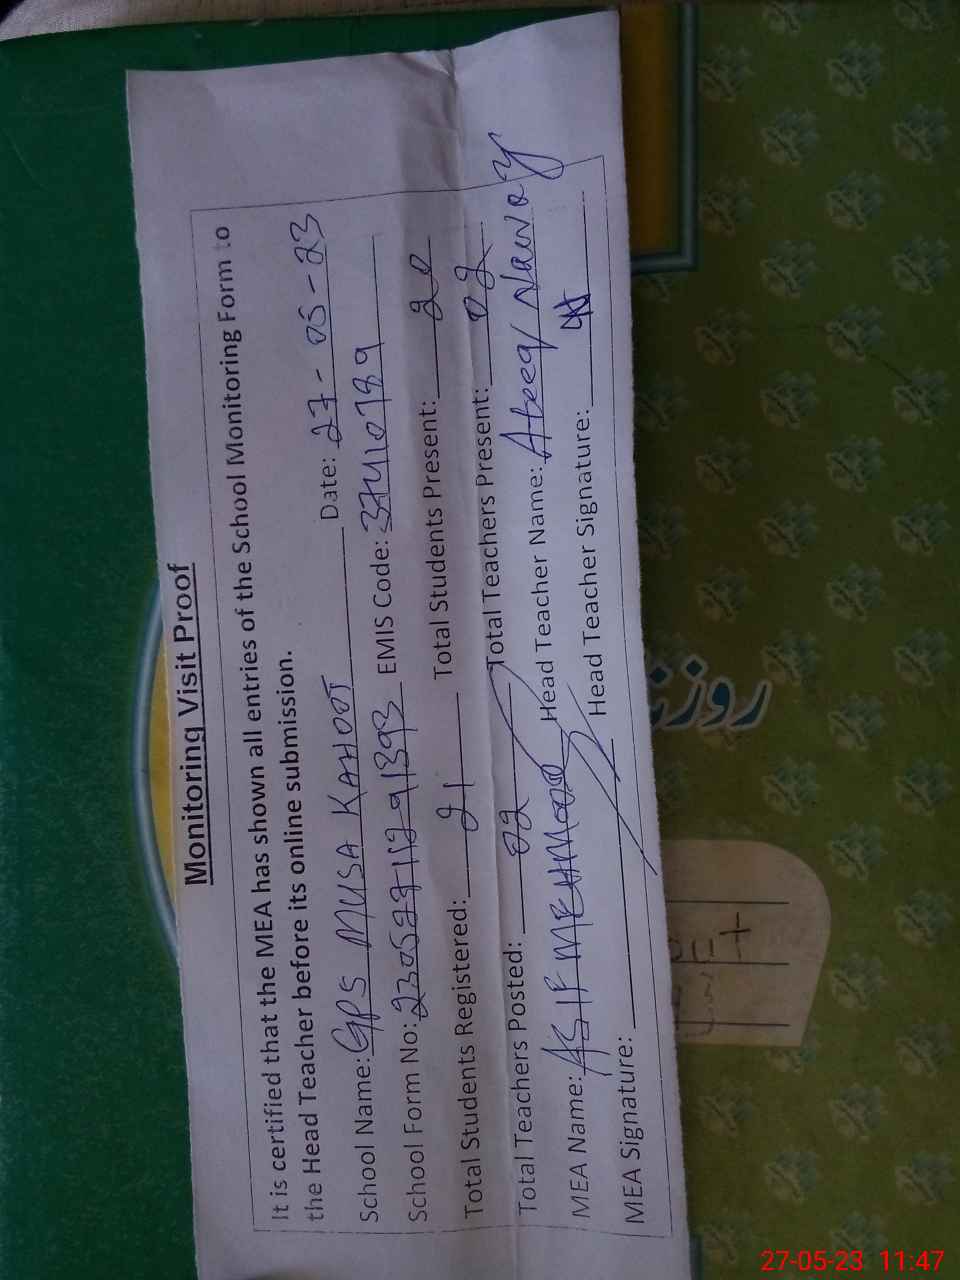 Monitoring Visit Proof
It is certified that the MEA has shown all entries of the School Monitoring Form to
the Head Teacher before its online submission.
School Name: GPS MUSA KAHOOT Date: 27-05-23
School Form No: 23052711291393 EMIS Code: 37410789
Total Students Registered: 21 Total Students Present: 20
Total Teachers Posted: 02 Total Teachers Present: 02
MEA Name: ASIF MEHMOOD Head Teacher Name: Ateeq Nawaz
MEA Signature: Head Teacher Signature:
27-05-23 11:47